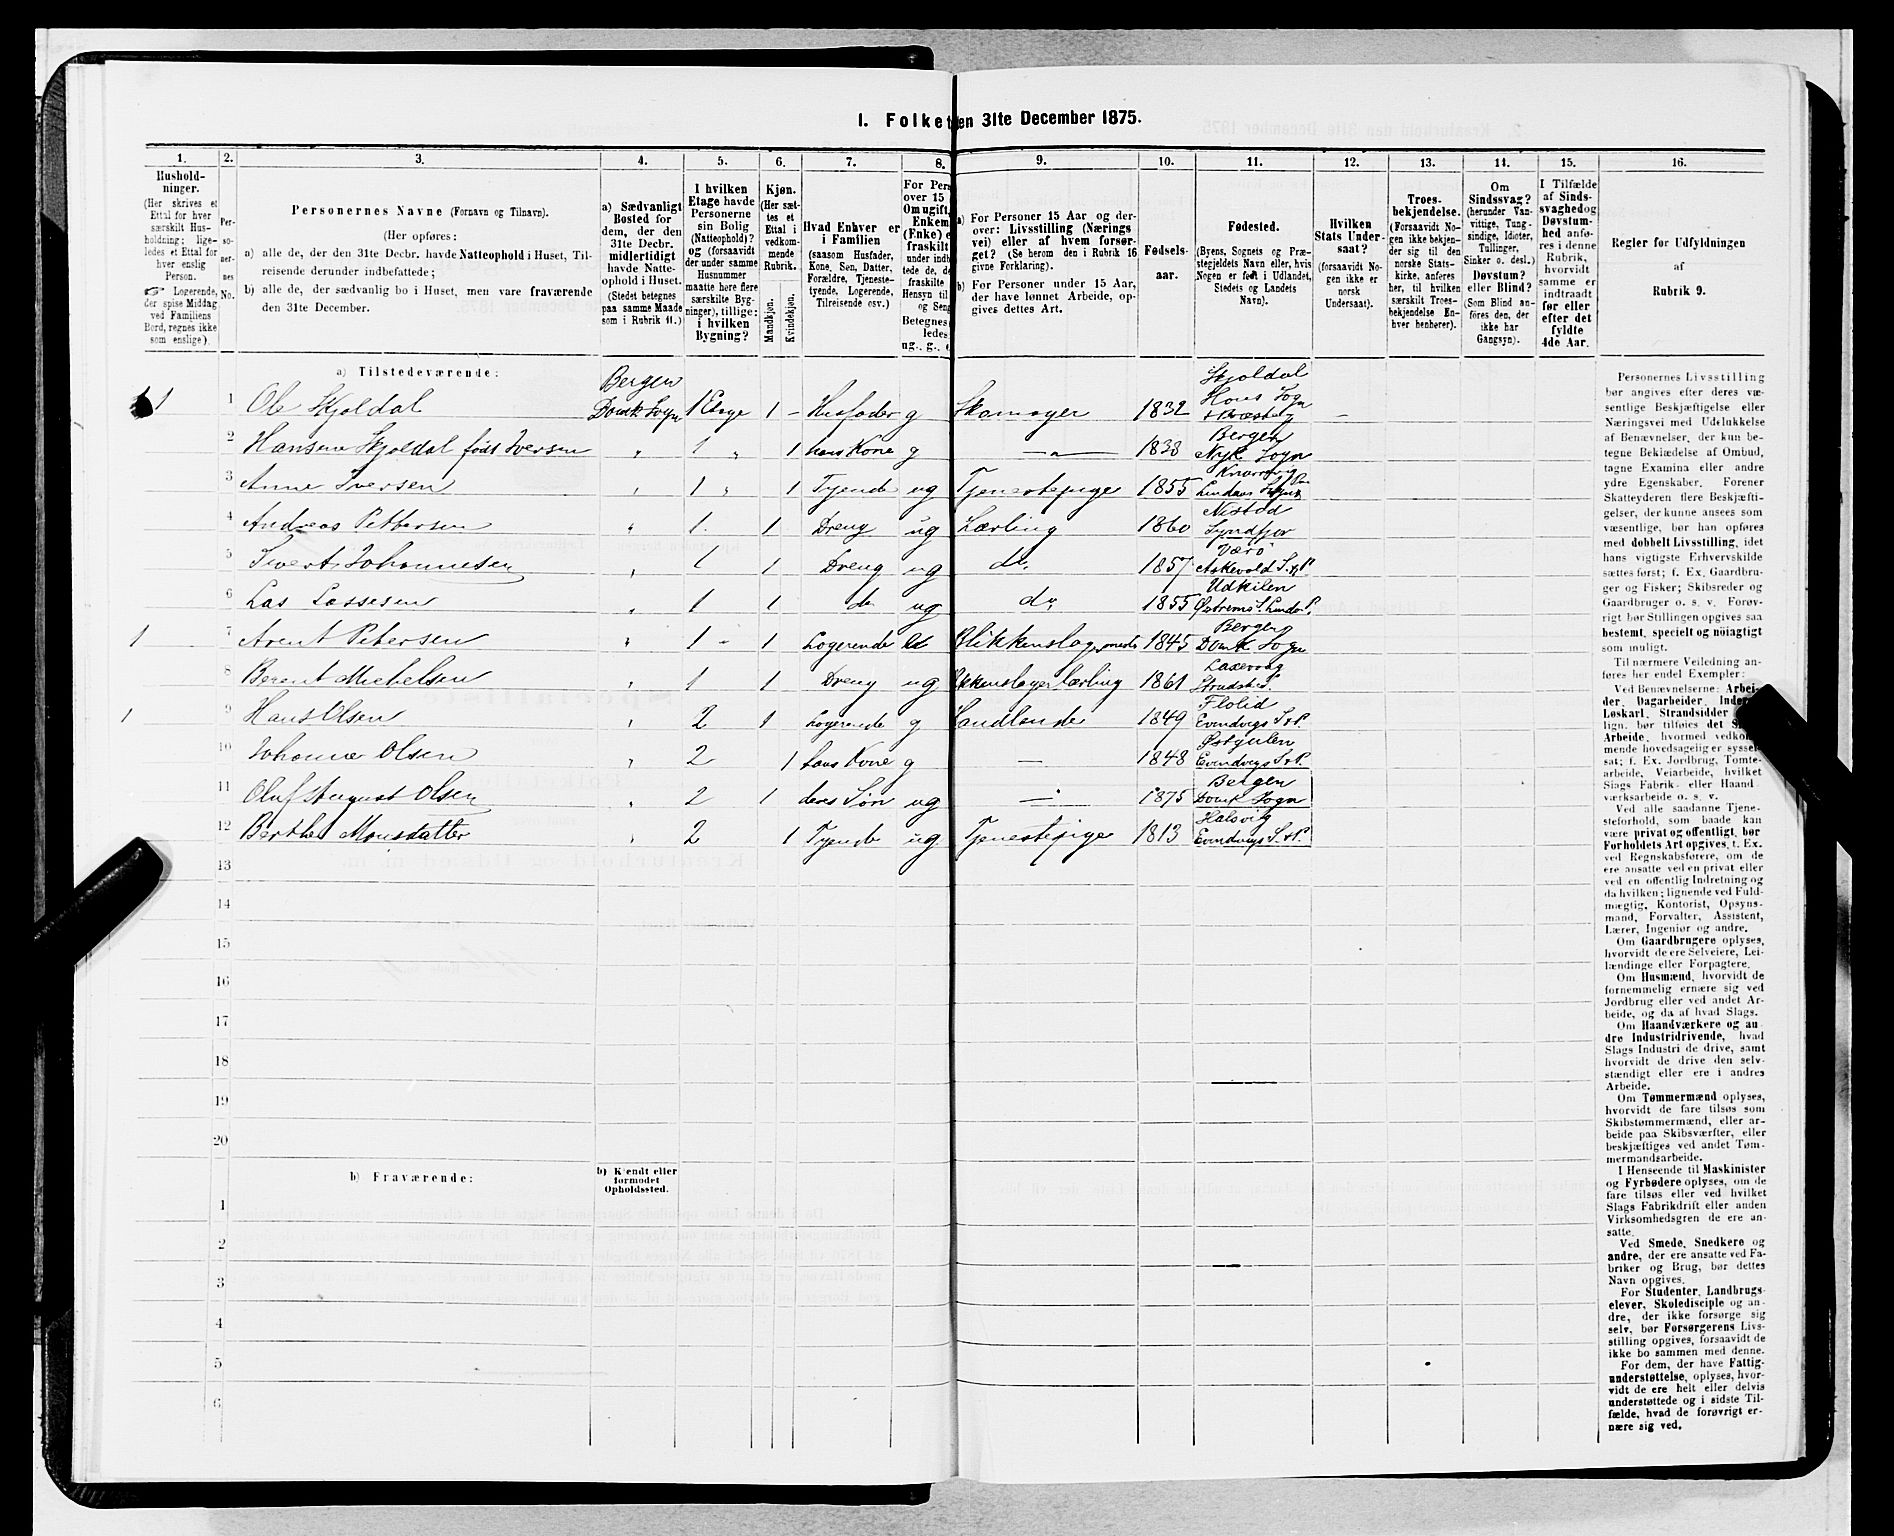 I. Folketen 31te December 1875.
1. 2. 3. 4. 5. 6. 7. 8. 9. 10. 11. 12. 13. 14. 15. 16.
Hushold-
ninger.
(Her skrives et
Ettal for hver
særskilt Hus-
holdning; lige-
ledes et Ettal for
hver enslig
Person.
☞ Logerende,
der spise Middag
ved Familiens
Bord, regnes ikke
som enslige).
Per-
so-
ner-
nes
No.
Personernes Navne (Fornavn og Tilnavn).
(Her opføres:
a) alle de, der den 31te Decbr. havde Natteophold i Huset, Til-
reisende derunder indbefattede;
b) alle de, der sædvanlig bo i Huset, men vare fraværende
den 31te December.
a) Sædvanligt
Bosted for
dem, der den
31te Decbr.
midlertidigt
havde Natte-
ophold i Huset.
(Stedet betegnes
paa samme Maade
som i Rubrik 11.)
I hvilken
Etage havde
Personerne
sin Bolig
(Natteophold)?
og (forsaavidt
der under samme
Husnummer
maatte høre flere
særskilte Byg-
ninger), tillige:
i hvilken
Bygning?
Kjøn.
(Her sæt-
tes et
Ettal i
vedkom-
mende
Rubrik.
Mandkjøn.
Kvindekjøn.
Hvad Enhver er
i Familien
(saasom Husfader,
Kone, Søn, Datter,
Forældre, Tjeneste-
tyende, Logerende,
Tilreisende osv.)
For Pers
over 15
Om ugift,
Enkem
(Enke) e
fraskilt
under indb
tede de, de
fraskilte
Hensyn til
og Seng
Betegnes
ledes
ug., g., e
a) For Personer 15 Aar og der-
over: Livsstilling (Nærings
vei) eller af hvem forsør-
get? (Se herom den i Rubrik 16
givne Forklaring).
b) For Personer under 15 Aar,
der have lønnet Arbeide, op-
gives dettes Art.
Fødsels-
aar.
Fødested.
(Byens, Sognets og Præ-
stegjeldets Navn eller, hvis
Nogen er født i Udlandet,
Stedets og Landets
Navn).
Hvilken
Stats Under-
saat?
(forsaavidt No-
gen ikke er
norsk
Undersaat).
Troes-
bekjendelse.
(Forsaavidt No-
gen ikke bekjen-
der sig til den
norske Stats-
kirke, anføres
her, til hvilken
særskilt Troes-
bekjendelse En-
hver henhører).
Om
Sindssvag?
(herunder Van-
vittige, Tung-
sindige, Idioter,
Tullinger,
Sinker o. desl.)
Døvstum?
eller Blind?
(Som Blind an-
føres den, der
ikke har
Gangsyn).
I Tilfælde
af Sinds-
svaghed og
Døvstum-
hed anfø-
res i denne
Rubrik,
hvorvidt
samme er
indtraadt
før eller
efter det
fyldte
4de Aar.
Regler for Udfyldningen
af
Rubrik 9.
a) Tilstedeværende:
1 1 Ole Skjoldal Bergen Domk Sogn 1 Etage 1 – Husfader g Skomager 1832 Skjoldal Hous Sogn –
2 Hansene Skjoldal født Iversen „ 1 „ 1 hans Kone g — 1833 Bergen Nyk Sogn
3 Anne Iversen „ 1 „ 1 Tyende ug Tjenestepige 1855
4 Andreas Pettersen „ 1 1 Dreng ug Lærling 1860
5 Sivert Johannesen „ 1 1 Dreng ug do 1857 Værø Askevold S. & P.
6 Las Lassesen „ 1 1 do ug do 1855 Udkilen
1 7 Arent Petersen „ 1 „ 1 Logerende 1845 Bergen Domk Sogn
8 Berent Michelsen „ 1 1 Dreng ug 1861 Laxevaag
1 9 Hans Olsen „ 2 1 Logerende g Handlende 1849 Flolid Evindvigs S & P.
10 Johanne Olsen „ 2 1 hans Kone g — 1848 Evindvigs S & P.
11 Oluf August Olsen „ 2 1 deres Søn ug — 1875 Bergen Domk Sogn
12 Berthe Monsdatter „ 2 1 Tyende ug. Tjenestepige 1813 Halsvig Evindvigs S. & P.
13
14
15
16
17
18
19
20
b) Fraværende:
b) Kjendt eller
formodet
Opholdssted.
1
2
3
4
5
6
Personernes Livsstilling
bør angives efter deres væ-
sentlige Beskjæftigelse eller
Næringsvei med Udelukkelse
af Benævnelser, der kun be-
tegne Beklædelse af Ombud,
tagne Examina eller andre
ydre Egenskaber. Forener
Skatteyderen flere Beskjæfti-
gelser, der kunne ansees som
væsentlige, bør han opføres
med dobbelt Livsstilling, idet
hans vigtigste Erhvervskilde
sættes først; f. Ex. Gaardbru-
ger og Fisker; Skibsreder og
Gaardbruger o. s. v. Forøv-
rigt bør Stillingen opgives saa
bestemt, specielt og nøiagtigt
som muligt.
Til nærmere Veiledning an-
føres her endel Exempler:
Ved Benævnelserne: Arbei-
der, Dagarbeider, Inder
Løskarl, Strandsidder
lign. bør tilføies det S
Arbeide, hvormed vedkom-
mende hovedsagelig er syssel-
sat; f. Ex. Jordbrug, Tomte-
arbeide, Veiarbeide, hvilket
Slags Fabrik- eller Haand
værksarbeide o. s. v.
Ved alle saadanne Tjene-
steforhold, som baade kan
være privat og offentligt, bør
Forholdets Art opgives, t. Ex.
ved Regnskabsførere, om de
ere ansatte ved en privat eller
ved en offentlig Indretning og
da hvilken; lignende ved Fuld-
mægtig, Kontorist, Opsyns-
mand, Forvalter, Assistent,
Lærer, Ingeniør og andre.
Om Gaardbrugere oplyses,
hvorvidt de ere Selveiere, Lei-
lændinge eller Forpagtere.
Om Husmænd, hvorvidt de
fornemmelig ernære sig ved
Jordbrug eller ved andet Ar-
beide, og da af hvad Slags.
Om Haandværkere og an
dre Industridrivende, hvad
Slags Industri de drive, samt
hvorvidt de drive den selv-
stændigt eller ere i andres
Arbeide.
Om Tømmermænd oplyses,
hvorvidt de fare tilsøs som
Skibstømmermænd, eller ar-
beide paa Skibsværfter, eller
beskjæftiges ved andet Tøm-
mermandsarbeide.
I Henseende til Maskinister
og Fyrbødere oplyses, om de
fare tilsøs eller ved hvilket
Slags Fabrikdrift eller anden
Virksomhedsgren de ere an-
satte.
Ved Smede, Snedkere og
andre, der ere ansatte ved Fa-
briker og Brug, bør dettes
Navn opgives.
For Studenter, Landbrugs-
elever, Skoledisciple og an-
dre, der ikke forsørge sig
selv, bør Forsørgerens Livs-
stilling opgives, forsaavidt de
ikke bo sammen med denne.
For dem, der have Fattig-
understøttelse, oplyses, hvor-
vidt de ere helt eller delvis
understøttede og i sidste Til-
fælde, hvad de forøvrigt er-
nære sig ved.